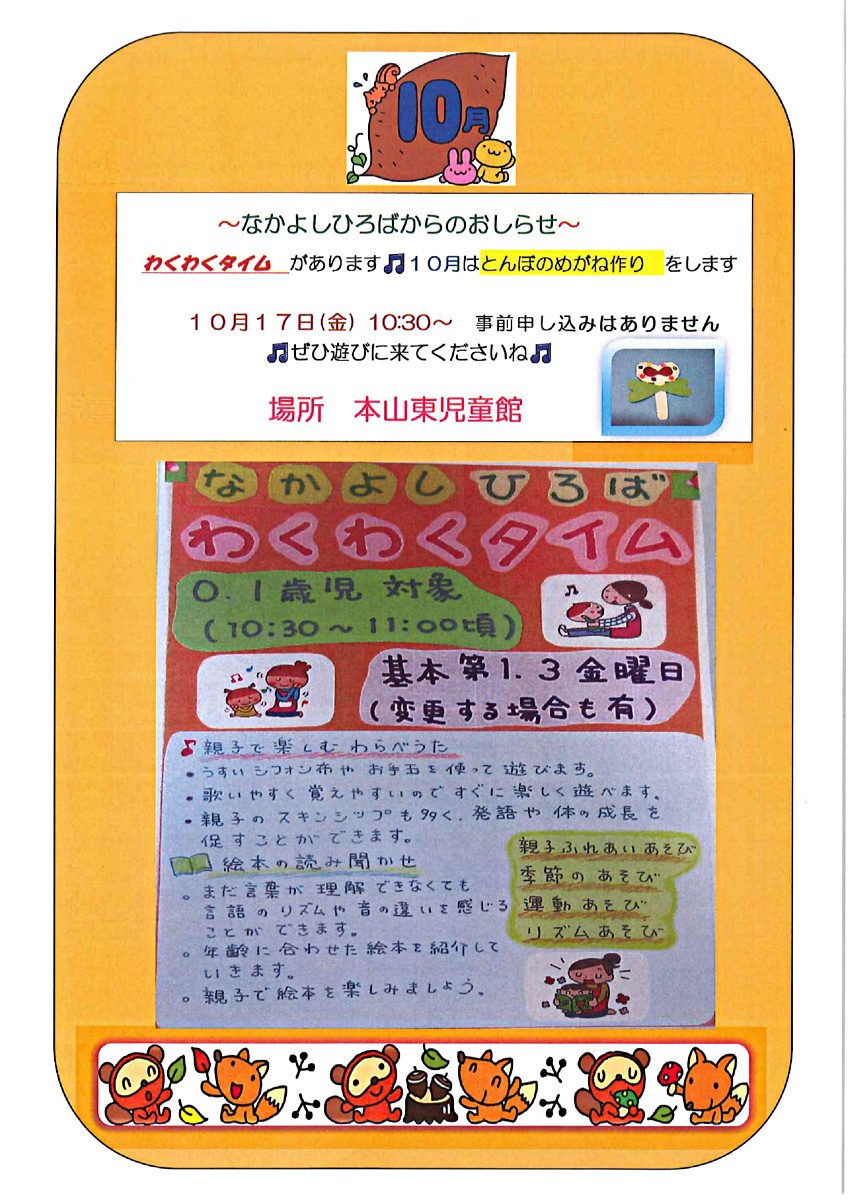 10月
～なかよしひろばからのおしらせ～
わくわくタイム　があります🎵１０月はとんぼのめがね作り　をします
１０月１７日(金)　10:30～　事前申し込みはありません
🎵ぜひ遊びに来てくださいね🎵
場所　本山東児童館
なかよしひろば
わくわくタイム
0.1歳児 対象
(10:30～11:00頃)
基本第1.3金曜日
(変更する場合も有)
♪親子で楽しむわらべうた
・うすいシフォン布や お手玉を使って遊びます。
・歌いやすく覚えやすいのですぐに楽しく遊べます。
・親子のスキンシップも多く、発語や体の成長を
促すことができます。
絵本の読み聞かせ
。まだ言葉が理解できなくても
言語のリズムや音の違いを感じる
ことができます。
。年齢に合わせた絵本を紹介して
いきます。
。親子で絵本を楽しみましょう。
親子ふれあいあそび
季節のあそび
運動あそび
リズムあそび